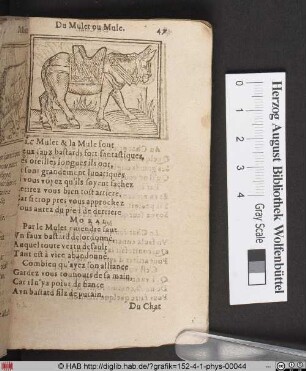 Du Mulet ou Mule.
47
Le Mulet & la Mule sont
faux bastards fort fantastiques,
oreilles longues ils ont,
sont grandement lunatiques
vous voyez qu'ils soyent fachez
tirez vous bien tost arriere,
Car si trop pres vous approchez
Vous aurez du pied de derriere
Moral
Par le Mulet entendre faut
Vn faux bastard desordonné,
Auquel toute vertu defaut,
Tant est à vice abandonné.
Combien qu'ayez son alliance
Gardez vous tousiours de sa main,
Car il n'y a point de fiance
A vn bastard fils de putain.
Du Chat
0
1
2
3
4
5
Gray Scale
Herzog August Bibliothek Wolfenbüttel
© HAB http://diglib.hab.de/?grafik=152-4-1-phys-00044